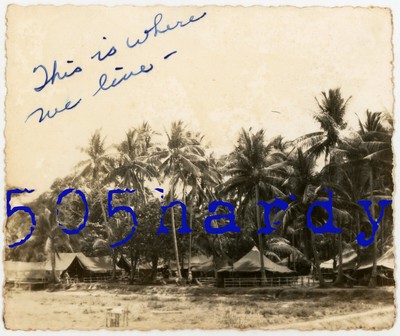 This is where
we live -
505hardy